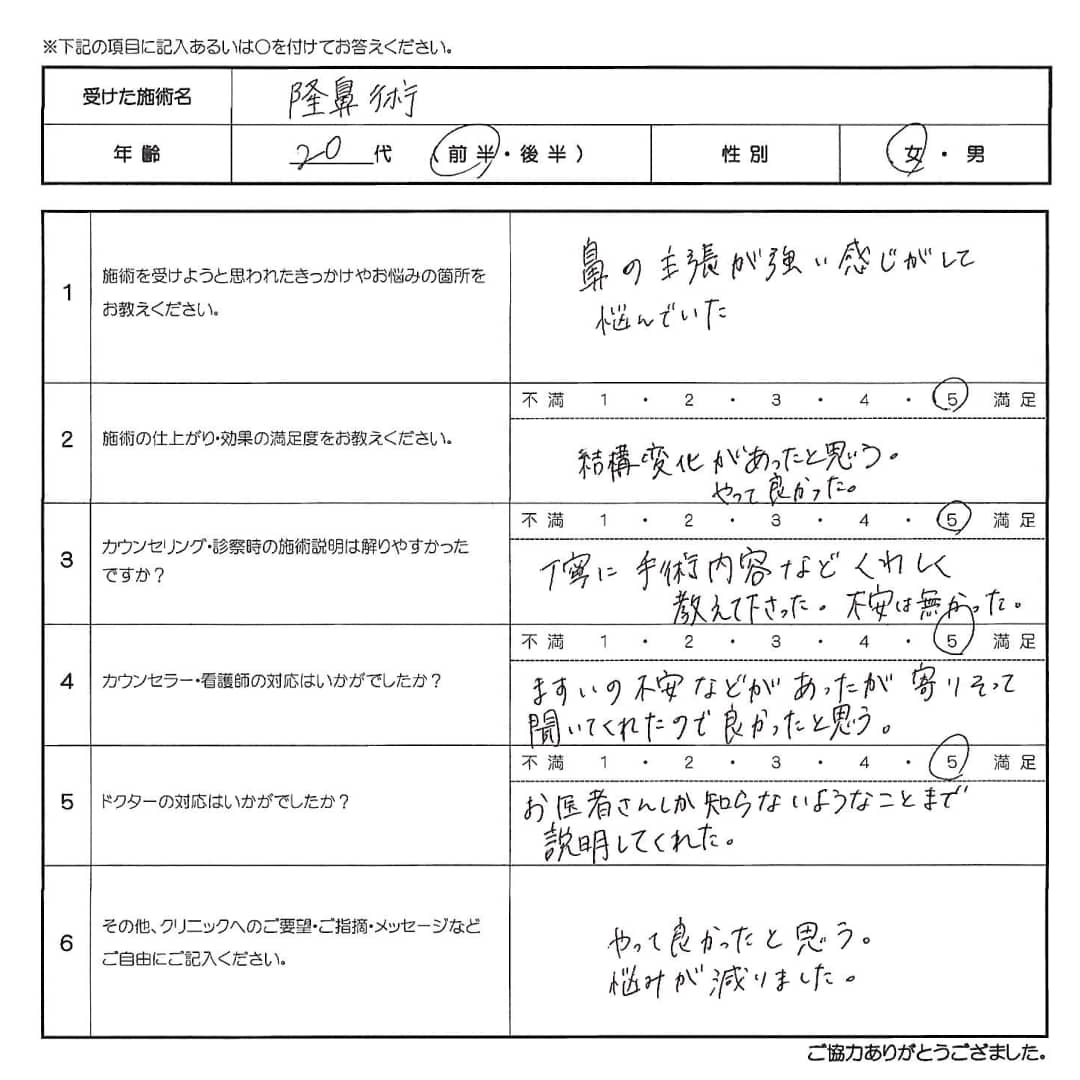 ※下記の項目に記入あるいは○を付けてお答えください。
受けた施術名 隆鼻術
年齢 20代 (前半・後半) 性別 女・男
1 施術を受けようと思われたきっかけやお悩みの箇所を
お教えください。
鼻の主張が強い感じがして
悩んでいた
2 施術の仕上がり・効果の満足度をお教えください。
不満 1・2・3・4・5 満足
結構変化があったと思う。
やって良かった。
3 カウンセリング・診察時の施術説明は解りやすかった
ですか？
不満 1・2・3・4・5 満足
丁寧に手術内容などくわしく
教えて下さった。不安は無かった。
4 カウンセラー・看護師の対応はいかがでしたか？
不満 1・2・3・4・5 満足
ますいの不安などがあったが寄りそって
聞いてくれたので良かったと思う。
5 ドクターの対応はいかがでしたか？
不満 1・2・3・4・5 満足
お医者さんしか知らないようなことまで
説明してくれた。
6 その他、クリニックへのご要望・ご指摘・メッセージなど
ご自由にご記入ください。
やって良かったと思う。
悩みが減りました。
ご協力ありがとうござました。